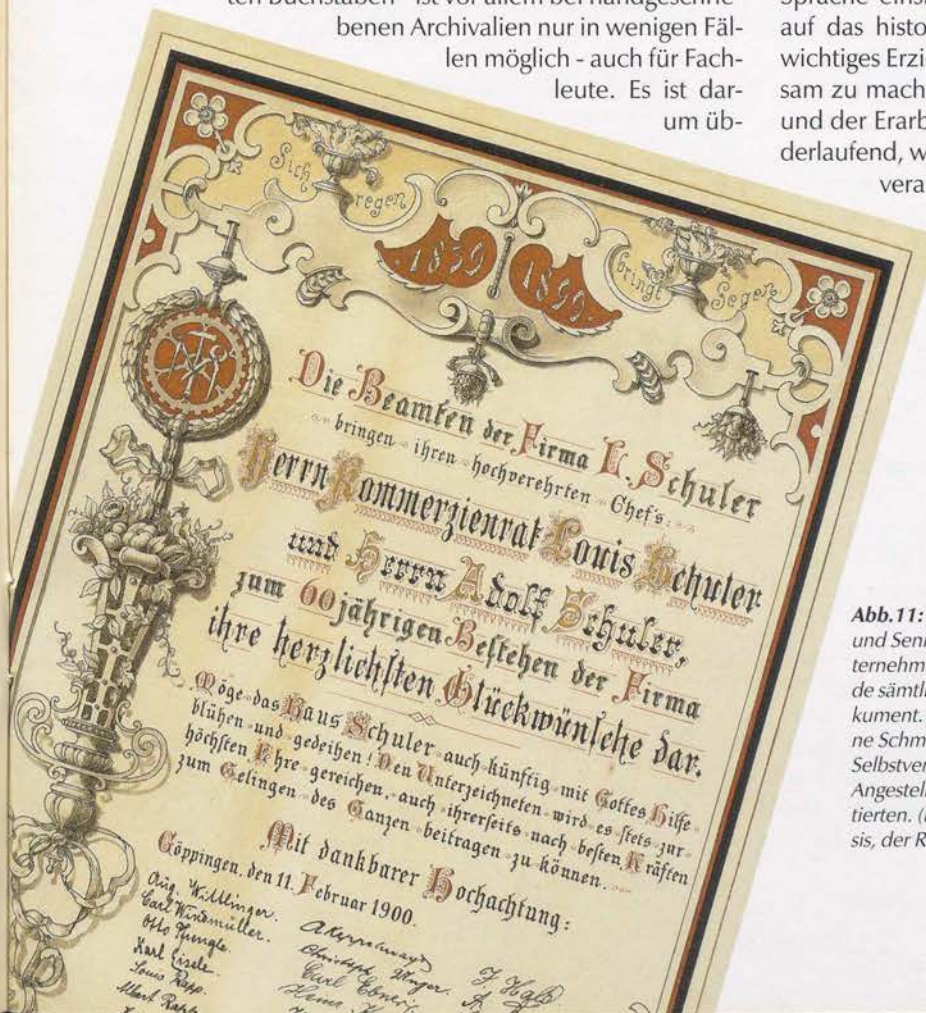 ten Buchstaben - ist vor allem bei handgeschrie-
benen Archivalien nur in wenigen Fäl-
len möglich - auch für Fach-
leute. Es ist dar-
um üb-
auf das histo
wichtiges Erzi
sam zu mach
und der Erarb
derlaufend, w
vera
Sich regen bringt Segen
1839 1899.
Die Beamten der Firma L. Schuler
bringen ihren hochverehrten Chef's:
Herrn Kommerzienrat Louis Schuler
und Herrn Adolf Schuler,
zum 60jährigen Bestehen der Firma
ihre herzlichsten Glückwünsche dar.
Möge das Haus Schuler auch künftig mit Gottes Hilfe
blühen und gedeihen! Den Unterzeichneten wird es stets zur
höchsten Ehre gereichen, auch ihrerseits nach besten Kräften
zum Gelingen des Ganzen beitragen zu können.
Mit dankbarer Hochachtung:
Göppingen, den 11. Februar 1900.
Aug. Wittlinger.
Carl Windmüller.
Otto
Karl Eisele.
Louis Rapp.
Albert Rapp
Christoph Unger.
Carl Ebner
Abb.11:
und Seni
ternehm
de sämtli
kument.
ne Schm
Selbstver
Angestell
tierten. (
sis, der R